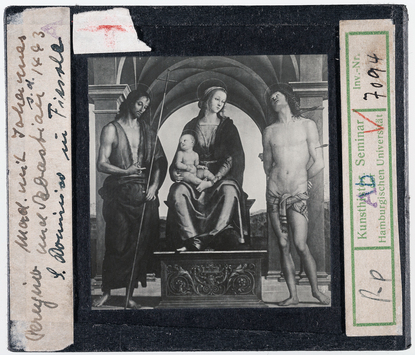 Perugino Mad. mit Johannes
und Sebastian 1493
S. Domenico in Fiesole
Kunsthist. Seminar
Hamburgischen Universität
Inv.-Nr.
7094
Rp